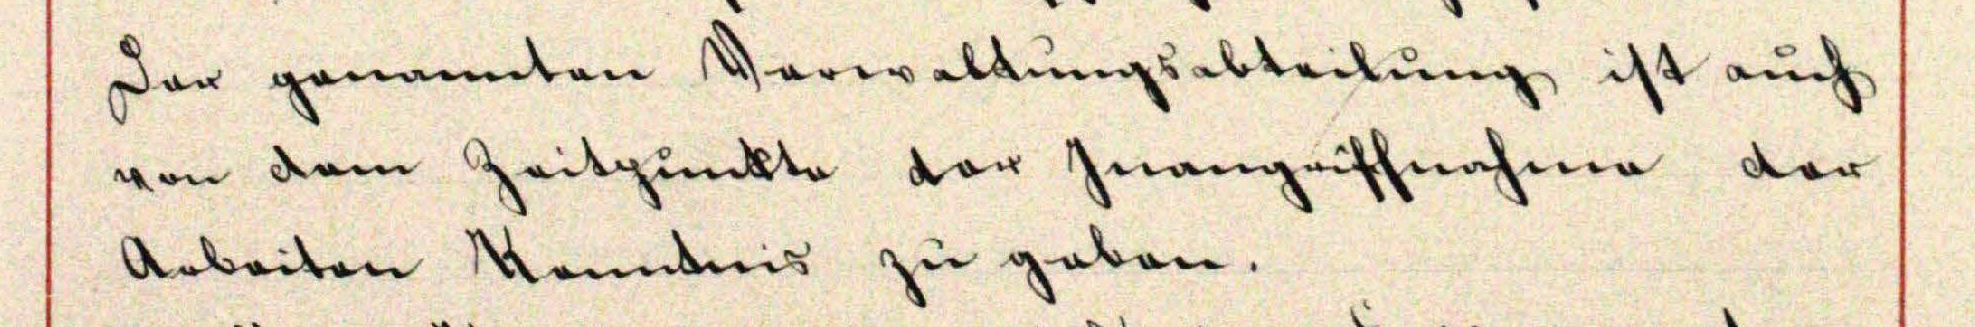 Der genannten Verwaltungsabteilung ist auch
von dem Zeitpunkte der Inangriffnahme der
Arbeiten Kenntnis zu geben.